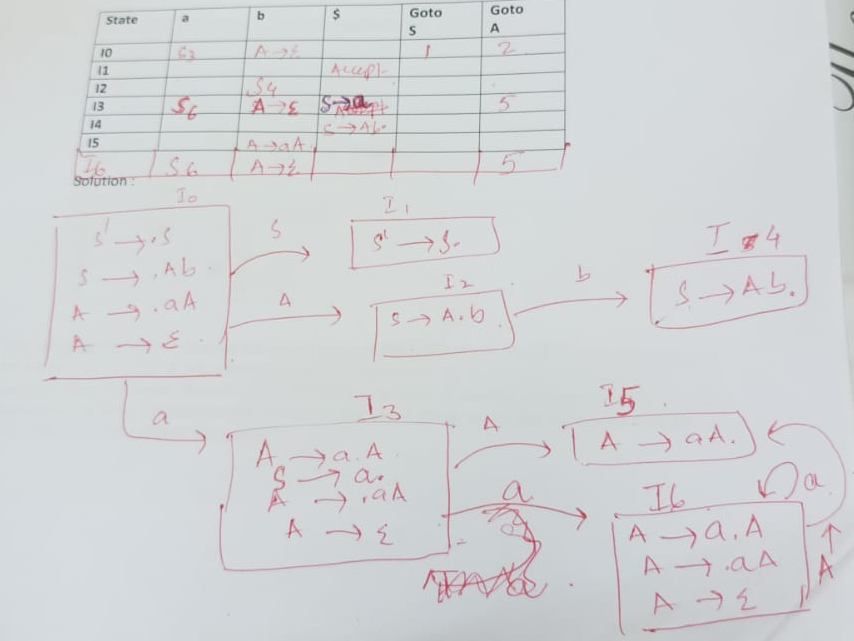 State a b $ Goto S Goto A
I0 S3 A→ε 1 2
I1 Accept
I2 S4
I3 S6 A→ε S→a 5
I4 S→Ab.
I5 A→aA
I6 S6 A→ε 5
Solution :
I0
S'→.S
S→.Ab
A→.aA
A→ε
S
I1
S'→S.
A
I2
S→A.b
b
I4
S→Ab.
a
I3
A→a.A
S→a.
A→.aA
A→ε
A
I5
A→aA.
a
I6
A→a.A
A→.aA
A→ε
a
A